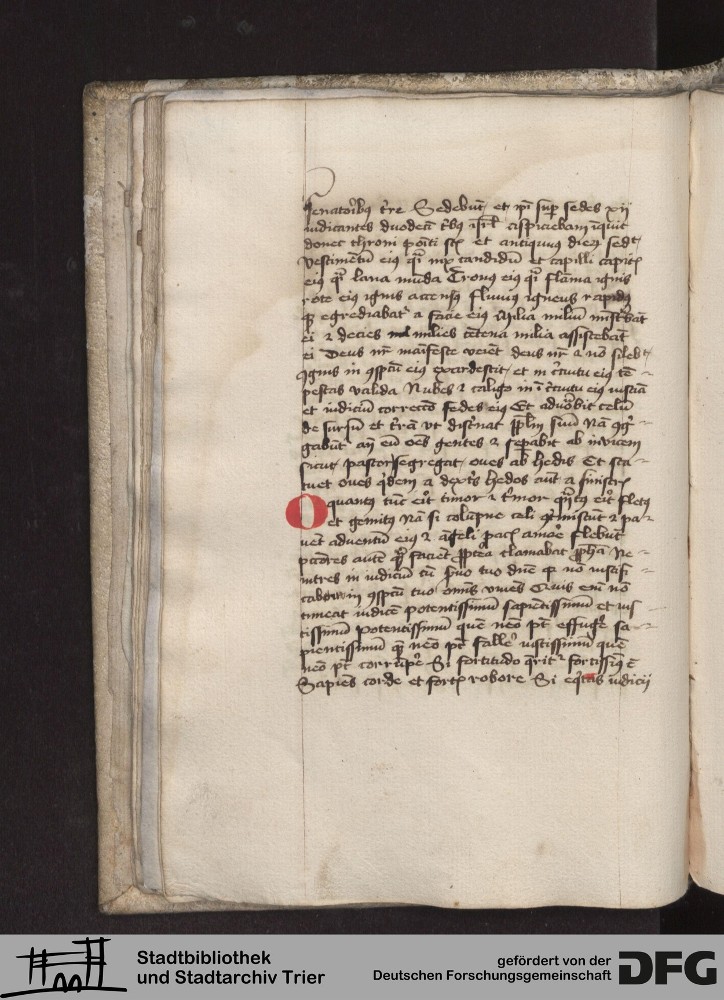 senatoribus tre Sedebunt et ipi sup sedes xii
iudicantes duodecim tribus isrl Aspiciebam iquit
donec throni positi st et antiquus dierum sedt
Vestimentu eius qi nix candidu et capilli capitis
eius qi lana muda Tronus eius qi flama ignis
rote eius ignis accensus fluvius igneus rapidus
q egrediabat a facie eius Milia milium mistrabat
ei et decies milies centena milia assistebat
ei Deus nr manifeste veniet deus nr et no silebt
Ignis in spectu eius exardescit et in circuitu eius te=
pestas valida Nubes et caligo in circuitu eius iusticia
et iudiciu correctio sedes eius Et advocabit celu
de sursu et terra ut discernat pplm suu Na gg=
gabut an eu oes gentes et sepabit ab invicem
sicut pastor segregat oves ab hedis Et sta=
tuet oves qdem a dextris hedos aut a sinistris
O quantus tuc erit timor et tremor qntus erit fletus
et gemitus Na si colupne celi cotmiscut et pa=
vet adventu eius et ageli pacis amare flebut
pctores aute qd facient Propterea clamabat ppha Ne
intres in iudiciu cu servo tuo dne q no iustifi=
cabitur in spectu tuo omnis vivens Quis eni no
timeat iudice potentissimu sapientissimu et ius=
tissimu potentissimu que nemo pt effugere sa=
pientissimu que nemo pt fallere iustissimu que
nemo pt corrumpere Si fortitudo queritur fortissimus e
Sapiens corde et fortis robore Si equitas iudicii
Stadtbibliothek
und Stadtarchiv Trier
gefördert von der
Deutschen Forschungsgemeinschaft
DFG